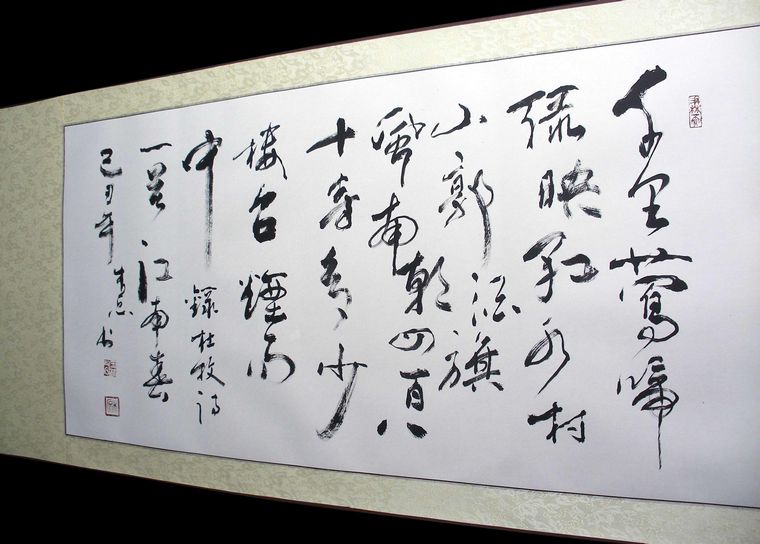 千里鶯啼
绿映红水村
山郭酒旗
風南朝四百八
十寺多少
楼台煙雨
中 錄杜牧诗
一首江南春
己丑年 书